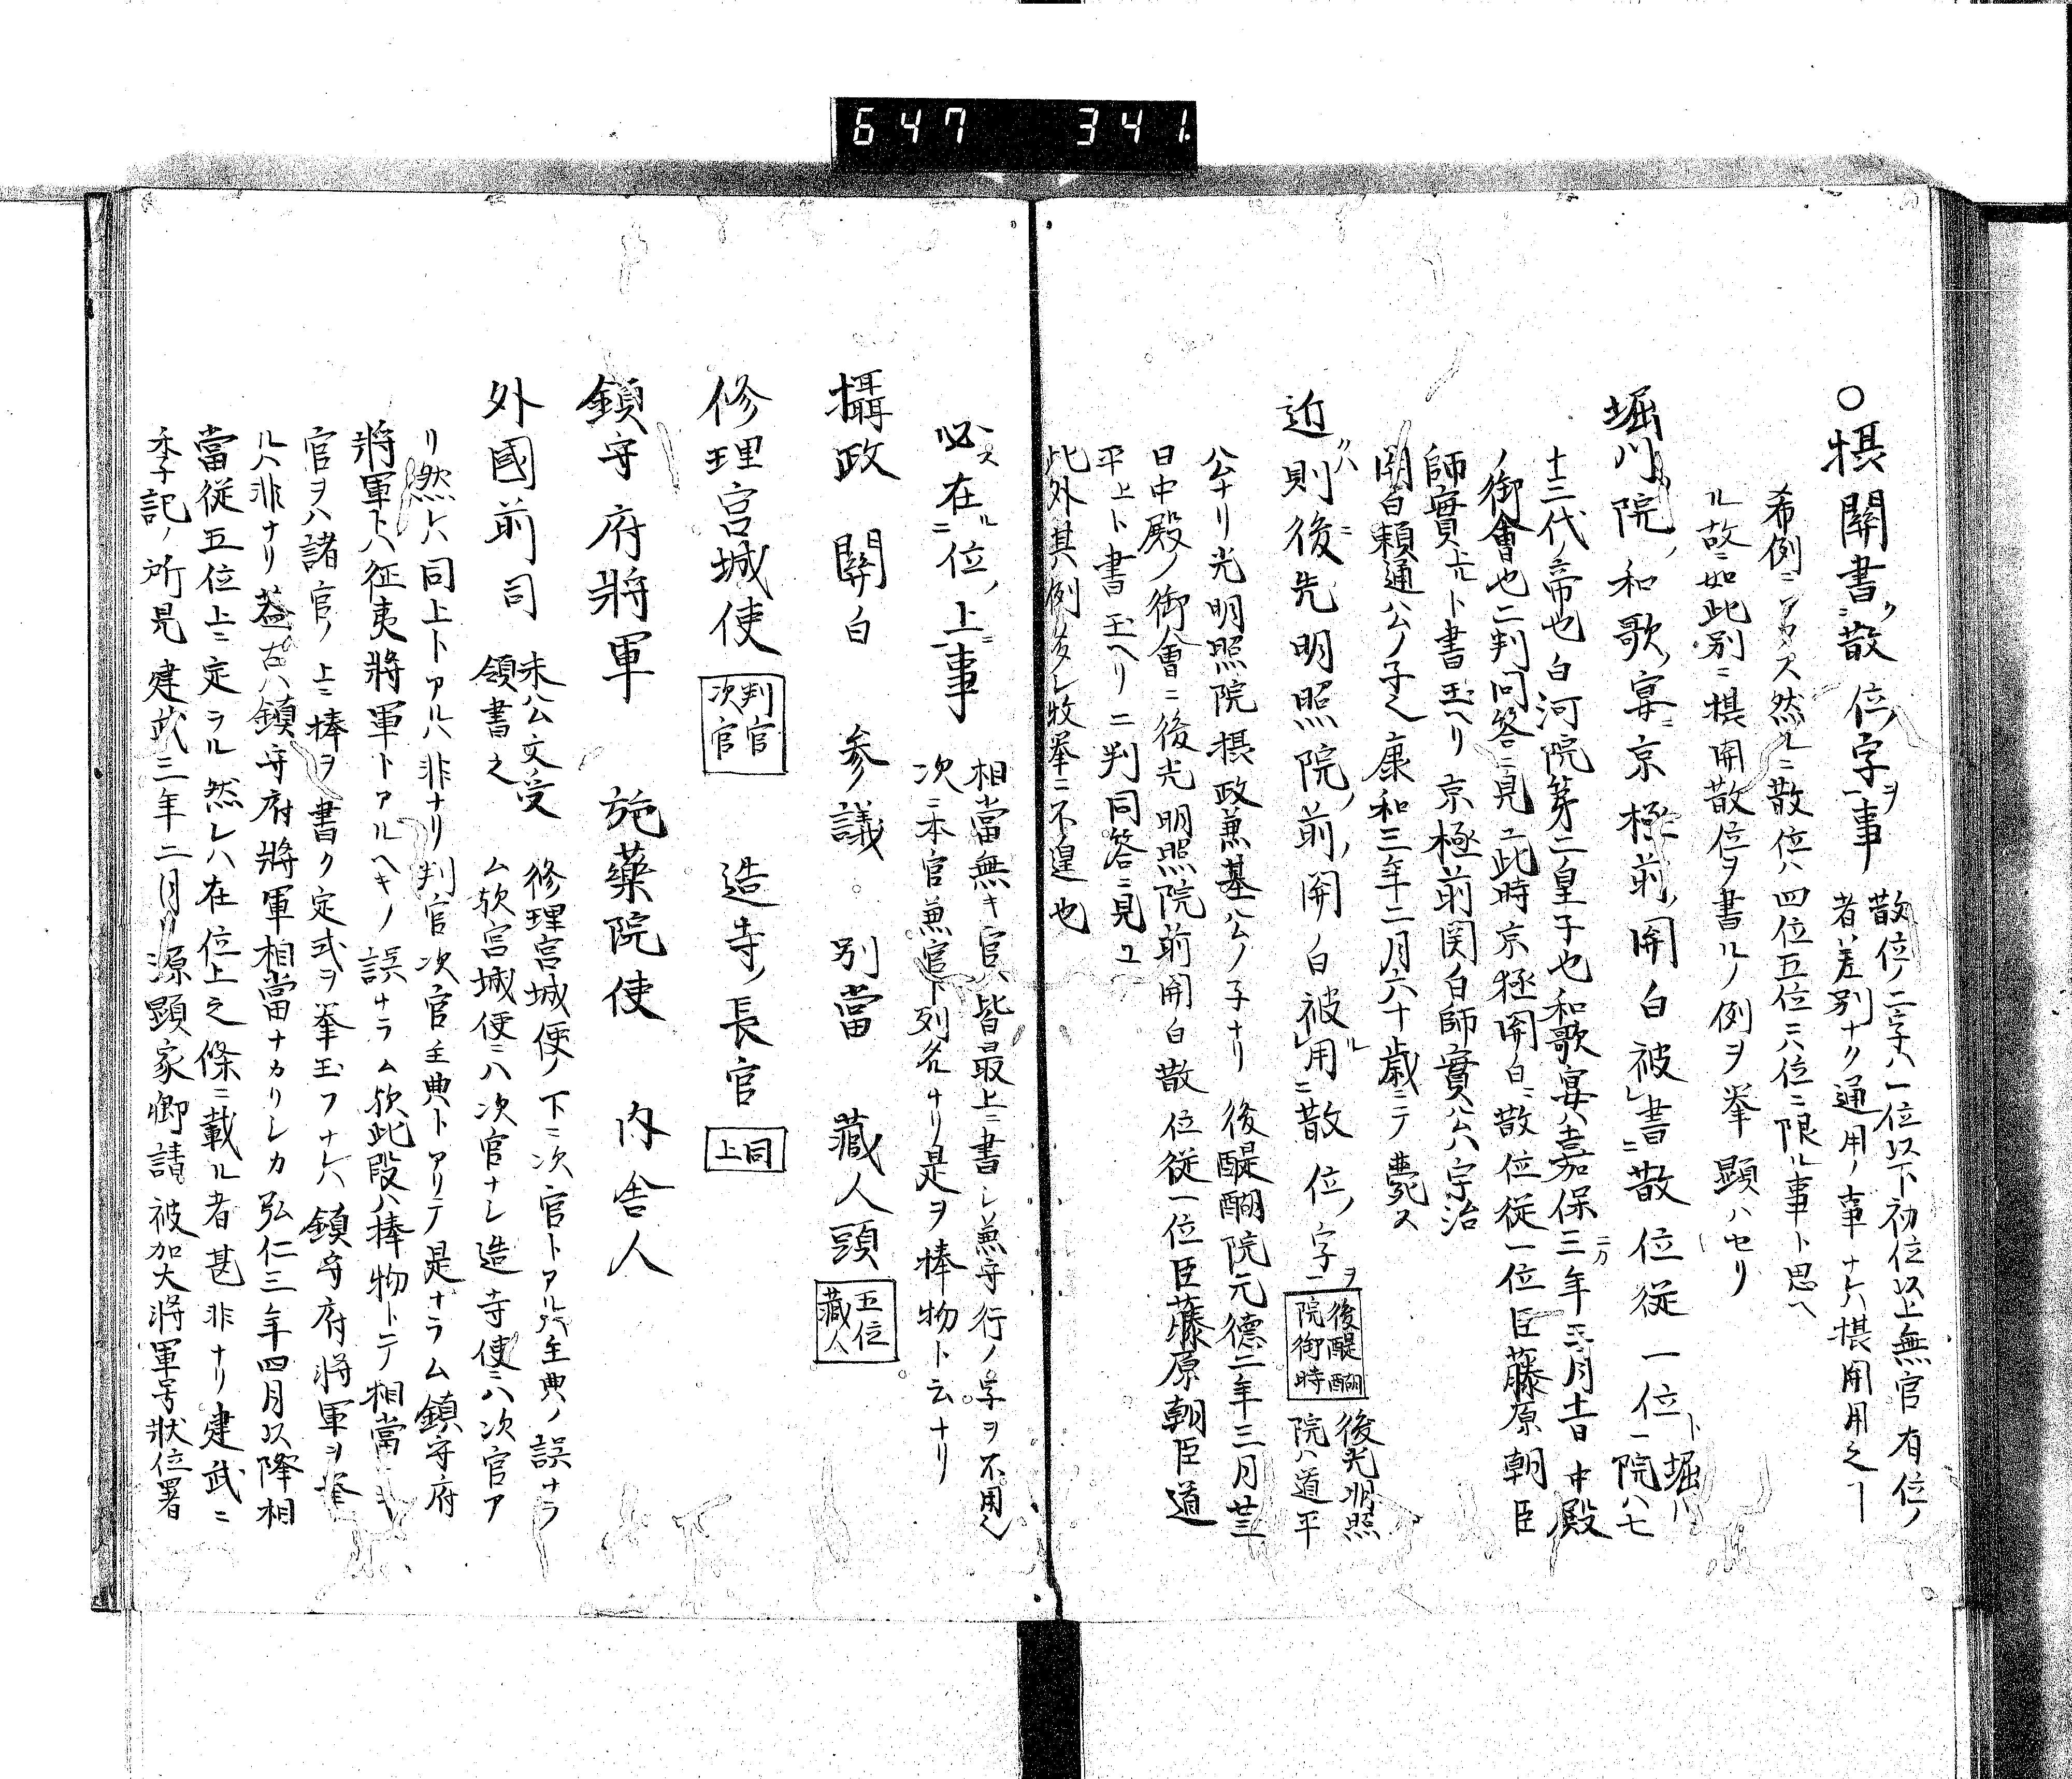 647 341
○摂關書ク散位ノ字ヲ事 散位ノ二字ハ一位以下初位以上無官有位ノ
者ハ差別ナク通用ノ事ナレハ摂関用之ヿ
希例ニアラス然ルニ散位ハ四位五位六位ニ限ル事ト思ヘ
ル故ニ如此別ニ摂関散位ヲ書ルノ例ヲ挙顕ハセリ
堀川院ノ和歌ノ宴ニ京極前ノ関白被書散位従一位ト 堀川院ハ七
十三代ノ帝也白河院第二皇子也和歌宴ハ嘉保三年三月十一日中殿
ノ御會也二判問答ニ見ユ此時京極関白ニ散位従一位臣藤原朝臣
師實上ト書玉ヘリ京極前関白師實公ハ宇治
関白頼通公ノ子也康和三年二月六十歳ニテ薨ス
近ハ則後光明照院ノ前ノ関白被用散位ノ字ヲ 後醍醐院御時 後光明照院ハ道平
公ナリ光明照院摂政兼基公ノ子ナリ後醍醐院元德二年三月廿三
日中殿ノ御會ニ後光明照院前関白散位従一位臣藤原朝臣道
平上ト書玉ヘリ二判問答ニ見ユ
此外其例多シ枚挙ニ不遑也
必ス在ル位ノ上ニ事 相當無キ官ハ皆最上ニ書シ兼守行ノ字ヲ不用也
次ニ本官兼官ト列名ナリ是ヲ棒物ト云ナリ
攝政 關白 参議 別當 藏人頭 五位藏人
修理宮城使 判官次官 造寺ノ長官 同上
鎮守府將軍 施藥院使 内舎人
外國前司 未公文受領書之 修理宮城使ノ下ニ次官トアルハ主典ノ誤ナラ
ム欤宮城使ニハ次官ナシ造寺使ニハ次官ア
リ然レハ同上トアルハ非ナリ判官次官主典トアリテ是ナラム鎮守府
將軍トハ征夷將軍トアルヘキノ誤ナラム欤此段ハ棒物トテ相當ニ
官ヲハ諸官ノ上ニ棒ヲ書ク定式ヲ挙玉フナレハ鎮守府將軍ヲ挙
ルハ非ナリ蓋古ハ鎮守府將軍相當ナカリシカ弘仁三年四月以降相
當従五位上ニ定ラル然レハ在位上之條ニ載ル者甚非ナリ建武ニ
季記ノ所見建武三年二月源顕家卿請被加大將軍号状位署